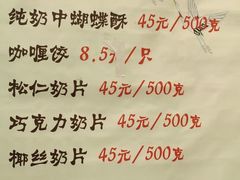 纯奶中蝴蝶酥 45元/500克
咖喱饺 8.5元/只
松仁奶片 45元/500克
巧克力奶片 45元/500克
椰丝奶片 45元/500克